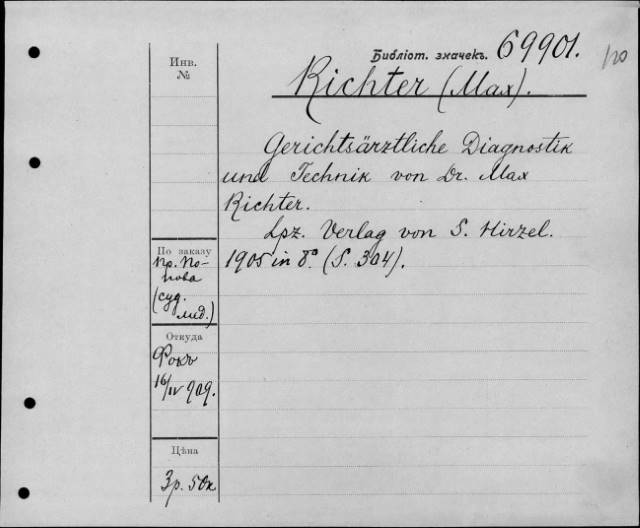 Инв.
№
Библіот. значекъ. 69901.
Richter (Max).
Gerichtsärztliche Diagnostik
und Technik von Dr. Max
Richter.
Lpz. Verlag von S. Hirzel.
1905 in 8° (S. 304).
По заказу
пр. По-
пова
(суд.
мед.)
Откуда
Фокъ
16/IV 909.
Цѣна
3р. 50к